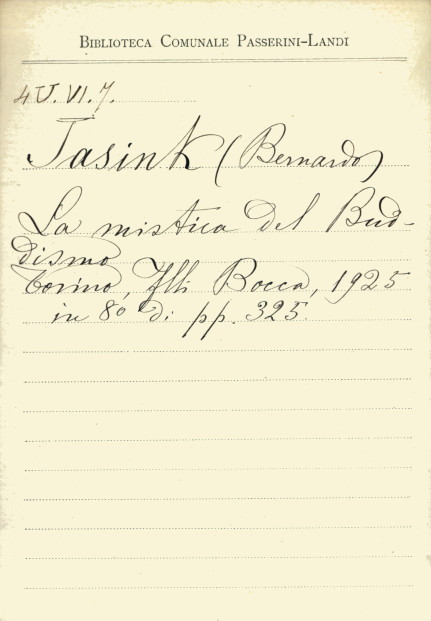 BIBLIOTECA COMUNALE PASSERINI-LANDI
4U.VI.7.
Jasink (Bernardo)
La mistica del Bud-
dismo
Torino, Flli Bocca, 1925
in 8º di pp. 325.